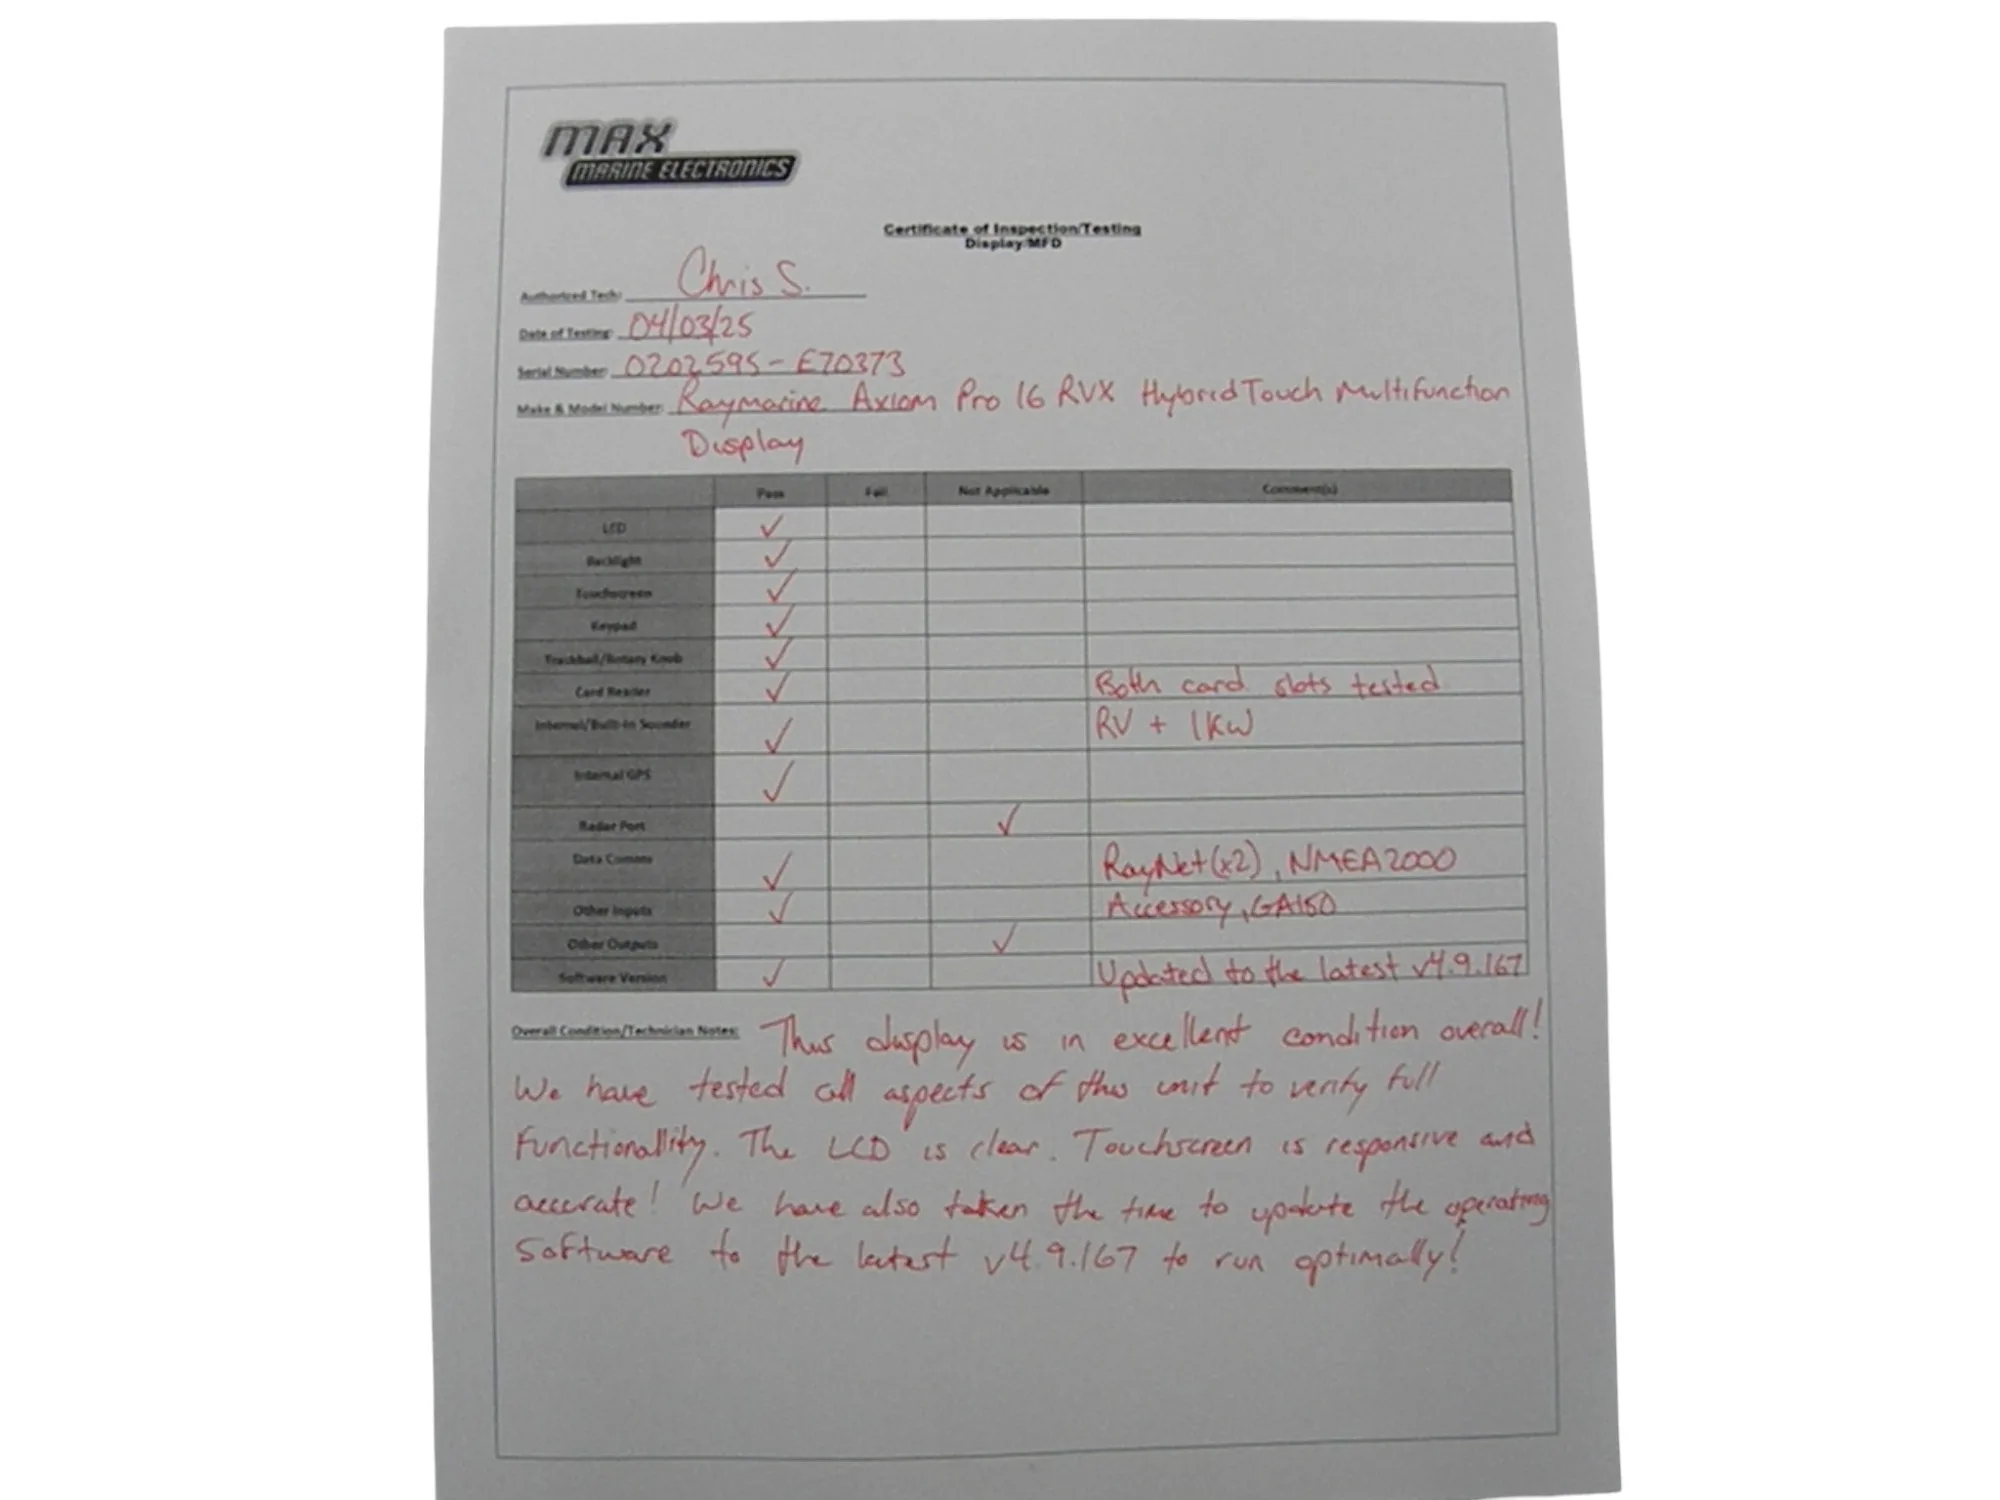 MAX
MARINE ELECTRONICS
Certificate of Inspection/Testing
Display/MFD
Authorized Tech: Chris S.
Date of Testing: 04/03/25
Serial Number: 0202595-E70373
Make & Model Number: Raymarine Axiom Pro 16 RVX HybridTouch Multifunction
Display
Pass Fail Not Applicable Comment(s)
LCD ✓
Backlight ✓
Touchscreen ✓
Keypad ✓
Trackball/Rotary Knob ✓
Card Reader ✓ Both card slots tested
Internal/Built-in Sounder ✓ RV + 1KW
Internal GPS ✓
Radar Port ✓
Data Comms ✓ RayNet(x2), NMEA2000
Other Inputs ✓ Accessory, GA150
Other Outputs ✓
Software Version ✓ Updated to the latest v4.9.167
Overall Condition/Technician Notes: This display is in excellent condition overall!
We have tested all aspects of this unit to verify full
functionallity. The LCD is clear. Touchscreen is responsive and
accurate! We have also taken the time to update the operating
software to the latest v4.9.167 to run optimally!